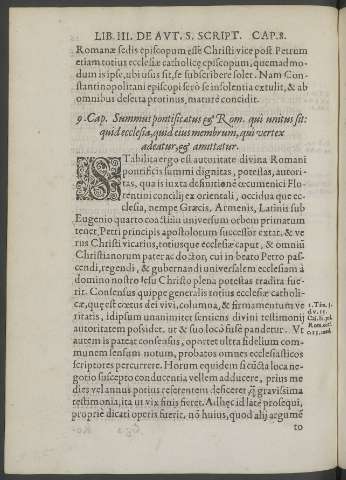 LIB. III. DE AVT. S. SCRIPT. CAP.8.
Romanæ sedis episcopum esse Christi vice post Petrum
etiam totius ecclesiæ catholicę episcopum, quemadmo-
dum is ipse, ubi usus sit, se subscribere solet. Nam Con-
stantinopolitani episcopi serò se insolentia extulit, & ab
omnibus deserta protinus, maturè concidit.
9. Cap. Summus pontificatus eg Rom. qui unitus sit:
quid ecclesia, quid eius membrum, qui vertex
adeatur, eg amittatur.
STabilita ergo est autoritate divina Romani
pontificis summi dignitas, potestas, autori-
tas, qua is iuxta definitionē œcumenici Flo-
rentini concilij ex orientali, occidua que ec-
clesia, nempe Græcis, Armenis, Latinis sub
Eugenio quarto coactia in universum orbem primatum
tenet, Petri principis apostolorum successor extat, & ve
rus Christi vicarius, totiusque ecclesiæ caput, & omniū
Christianorum pater ac doctor, cui in beato Petro pas-
cendi, regendi, & gubernandi universalem ecclesiam à
domino nostro Iesu Christo plena potestas tradita fue-
rit. Consensus quippe generalis totius ecclesiæ catholi-
cæ, quę est cœtus dei vivi, columna, & firmamentum ve
ritatis, idipsum unanimiter sentiens divini testimonij
autoritatem possidet, ut & suo locò fusè pandetur. Vt
autem is pateat consensus, oportet ultra fidelium com-
munem sensum notum, probatos omnes ecclesiasticos
scriptores percurrere. Horum equidem si cūcta loca ne-
gotio suscepto conducentia vellem adducere, prius me
dies vel annus potius referentem desiceret, ę gravissima
testimonia, ita ut vix finis fieret. Adhęc id latè prosequi,
propriè dicati operis fuerit, nō huius, quod alij argumē
to
1. Tim. 3.